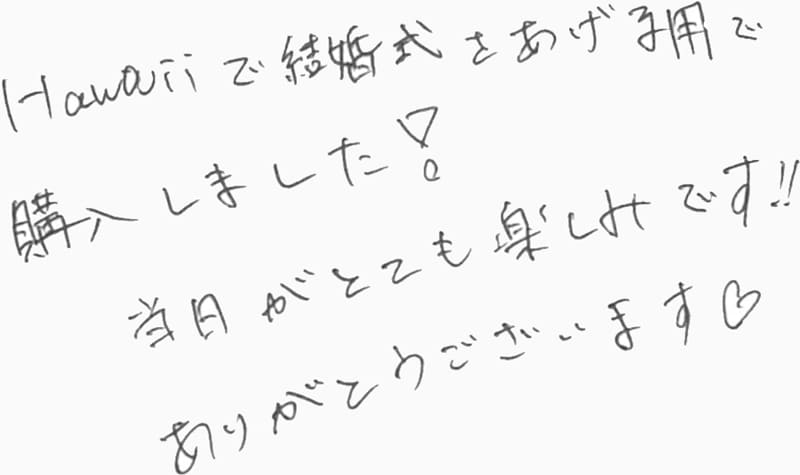 Hawaiiで結婚式をあげる用で
購入しました!
当日がとても楽しみです!!
ありがとうございます♡